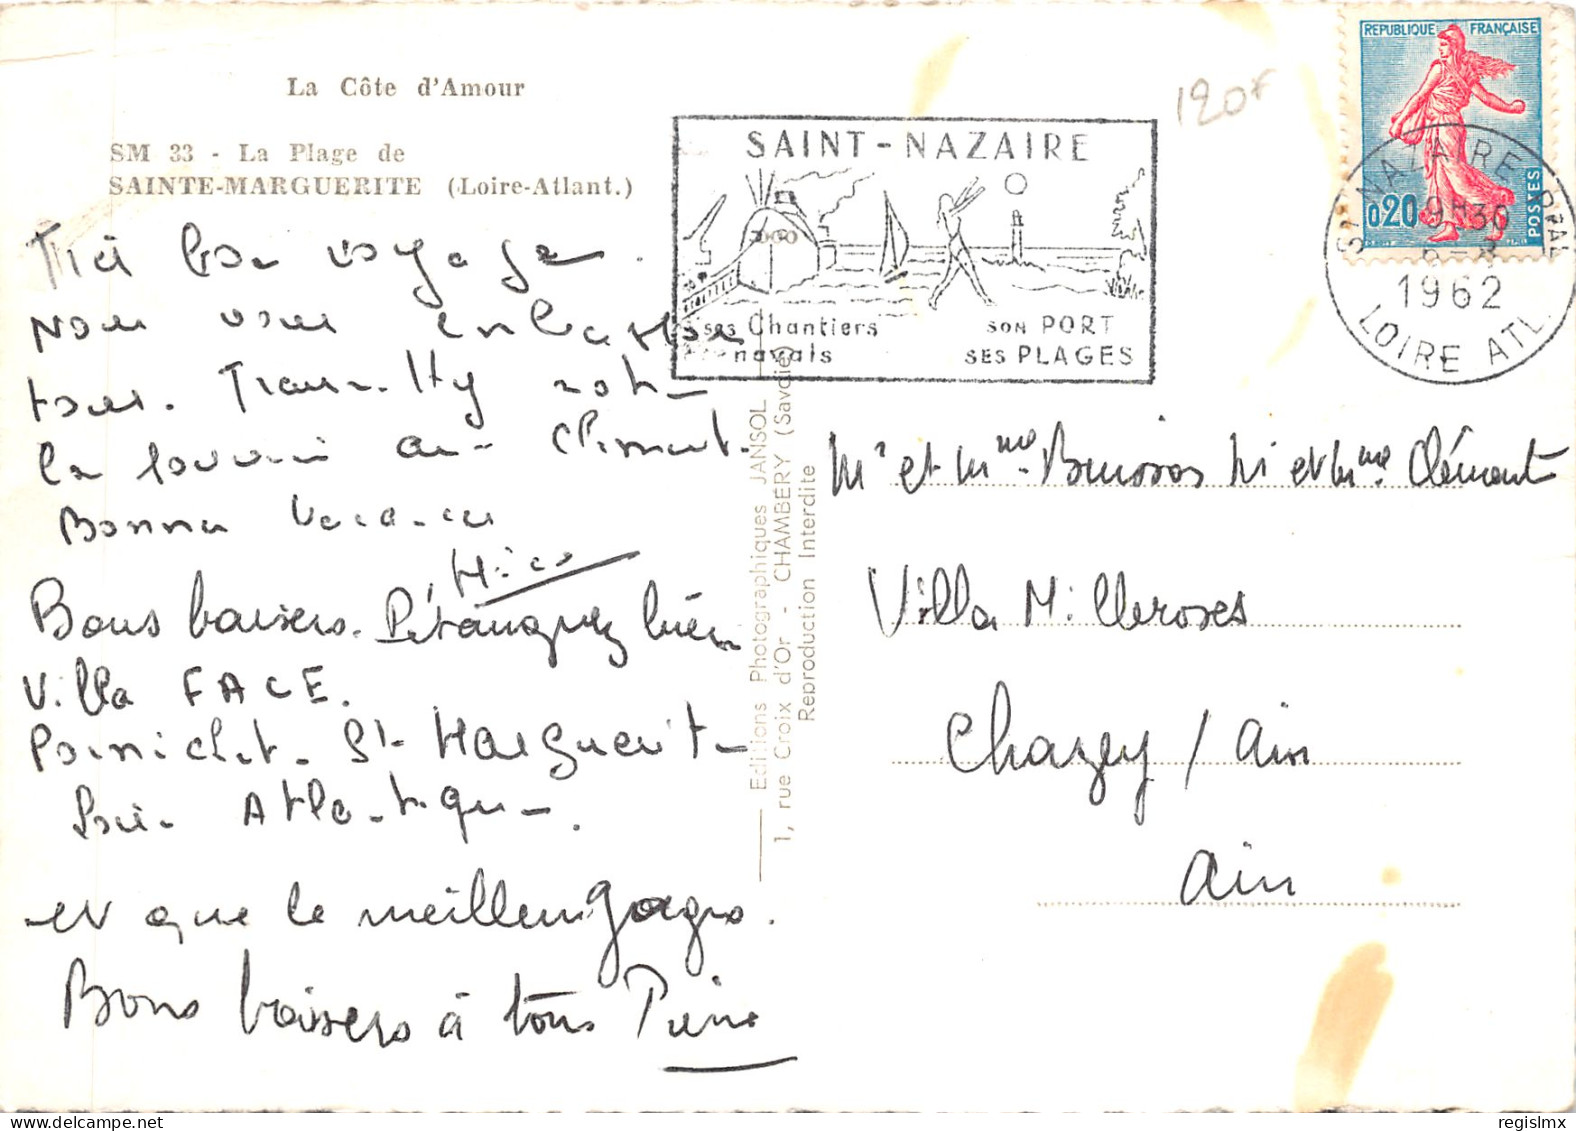 La Côte d'Amour
SM 33 - La Plage de
SAINTE-MARGUERITE (Loire-Atlant.)
120F
SAINT-NAZAIRE
ses Chantiers
navals
SON PORT
SES PLAGES
REPUBLIQUE FRANÇAISE
0,20
POSTES
ST NAZAIRE PPAL
9H30
1962
LOIRE ATL.
Très bon voyage.
Nous vous embrassons
tous. Transmettez notre
bon souvenir aux Clément.
Bonnes Vacances
Bons baisers. Pétanquez bien
Villa FACE.
Pornichet. Ste Marguerite
Loire Atlantique.
et que le meilleur gagne.
Bons baisers à tous Pierre
Editions Photographiques JANSOL
1, rue Croix d'Or - CHAMBÉRY (Savoie)
Reproduction Interdite
Mr et Mme Buisson Mr et Mme Clément
Villa Milleroses
Chazey / Ain
Ain
regislmx